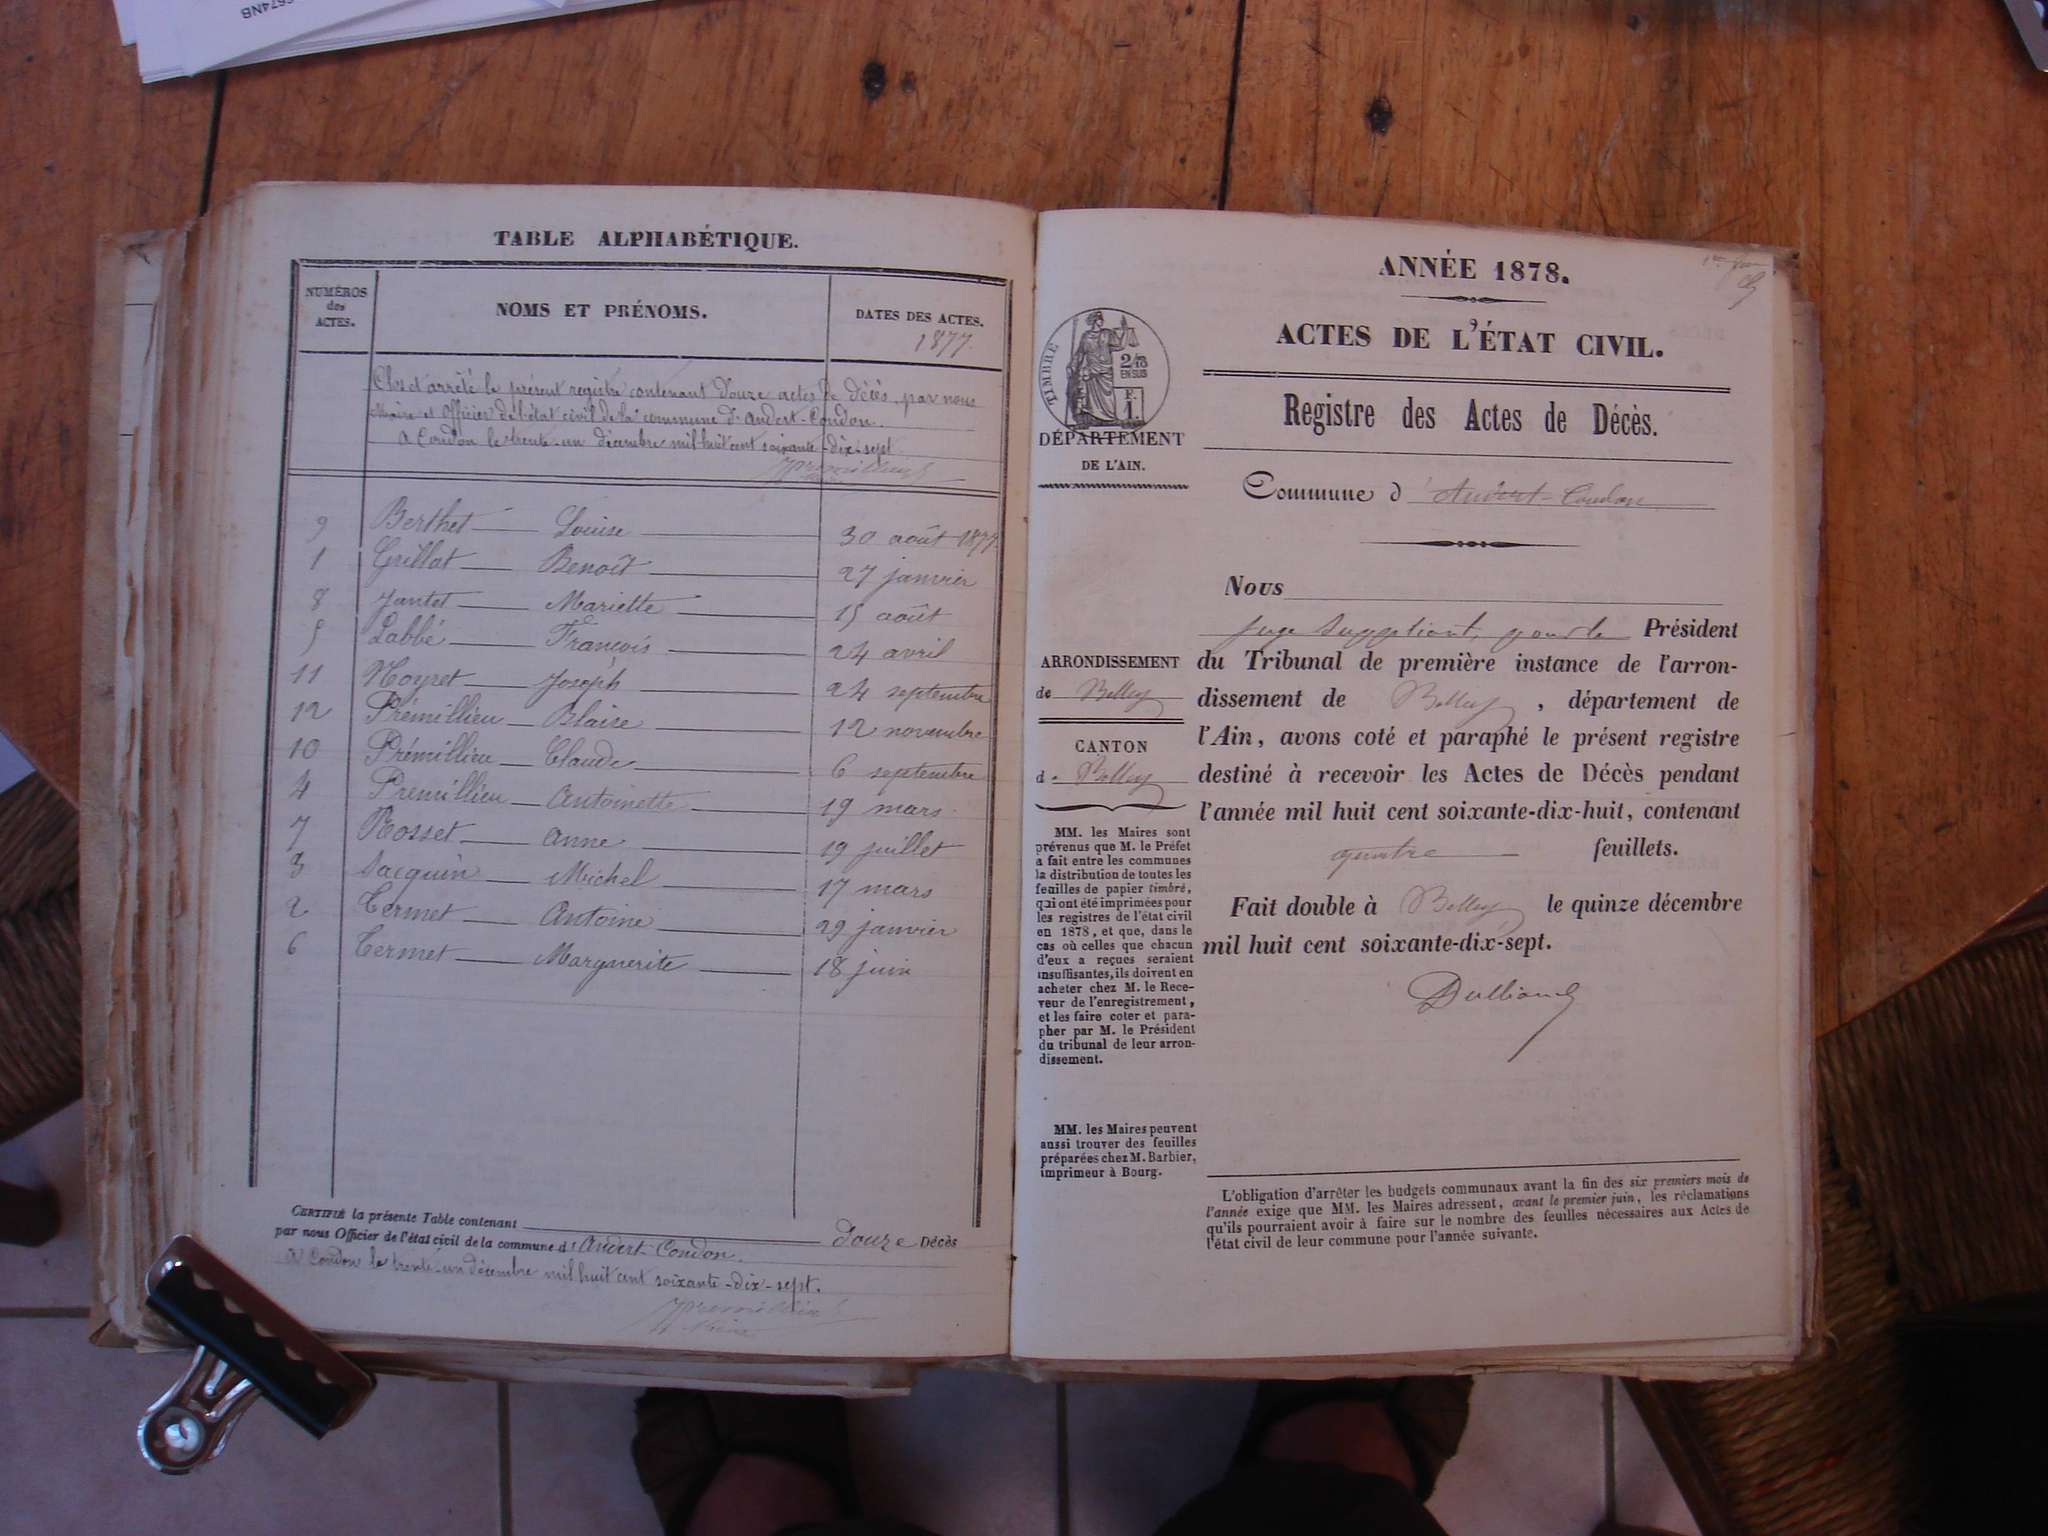 6674NB
TABLE ALPHABÉTIQUE.
NUMÉROS
des
ACTES.
NOMS ET PRÉNOMS.
DATES DES ACTES.
1877.
Clos et arrêté le présent registre contenant douze actes de décès, par nous
Maire et Officier de l'état civil de la commune d'Andert-Condon.
A Condon le trente-un décembre mil huit cent soixante-dix-sept.
9 Berthet Louise 30 août 1877.
1 Grillat Benoît 27 janvier
8 Jantet Mariette 15 août
5 Labbé François 24 avril
11 Noyret Joseph 24 septembre
12 Prémillieu Blaise 12 novembre
10 Prémillieu Claude 6 septembre
4 Prémillieu Antoinette 19 mars.
7 Rosset Anne 19 juillet
3 Sacquin Michel 17 mars
2 Termet Antoine 29 janvier
6 Termet Marguerite 18 juin
CERTIFIÉ la présente Table contenant douze Décès
par nous Officier de l'état civil de la commune d'Andert-Condon.
A Condon le trente-un décembre mil huit cent soixante-dix-sept.
Maire
ANNÉE 1878.
ACTES DE L'ÉTAT CIVIL.
TIMBRE
2/10
EN SUS
F.
1.
DÉPARTEMENT
DE L'AIN.
Registre des Actes de Décès.
Commune d'Andert-Condon
Nous
juge suppléant, pour le Président
du Tribunal de première instance de l'arron-
dissement de Belley, département de
l'Ain, avons coté et paraphé le présent registre
destiné à recevoir les Actes de Décès pendant
l'année mil huit cent soixante-dix-huit, contenant
quatre feuillets.
Fait double à Belley le quinze décembre
mil huit cent soixante-dix-sept.
ARRONDISSEMENT
de Belley
CANTON
de Belley
MM. les Maires sont
prévenus que M. le Préfet
a fait entre les communes
la distribution de toutes les
feuilles de papier timbré,
qui ont été imprimées pour
les registres de l'état civil
en 1878, et que, dans le
cas où celles que chacun
d'eux a reçues seraient
insuffisantes, ils doivent en
acheter chez M. le Rece-
veur de l'enregistrement,
et les faire coter et para-
pher par M. le Président
du tribunal de leur arron-
dissement.
MM. les Maires peuvent
aussi trouver des feuilles
préparées chez M. Barbier,
imprimeur à Bourg.
L'obligation d'arrêter les budgets communaux avant la fin des six premiers mois de
l'année exige que MM. les Maires adressent, avant le premier juin, les réclamations
qu'ils pourraient avoir à faire sur le nombre des feuilles nécessaires aux Actes de
l'état civil de leur commune pour l'année suivante.